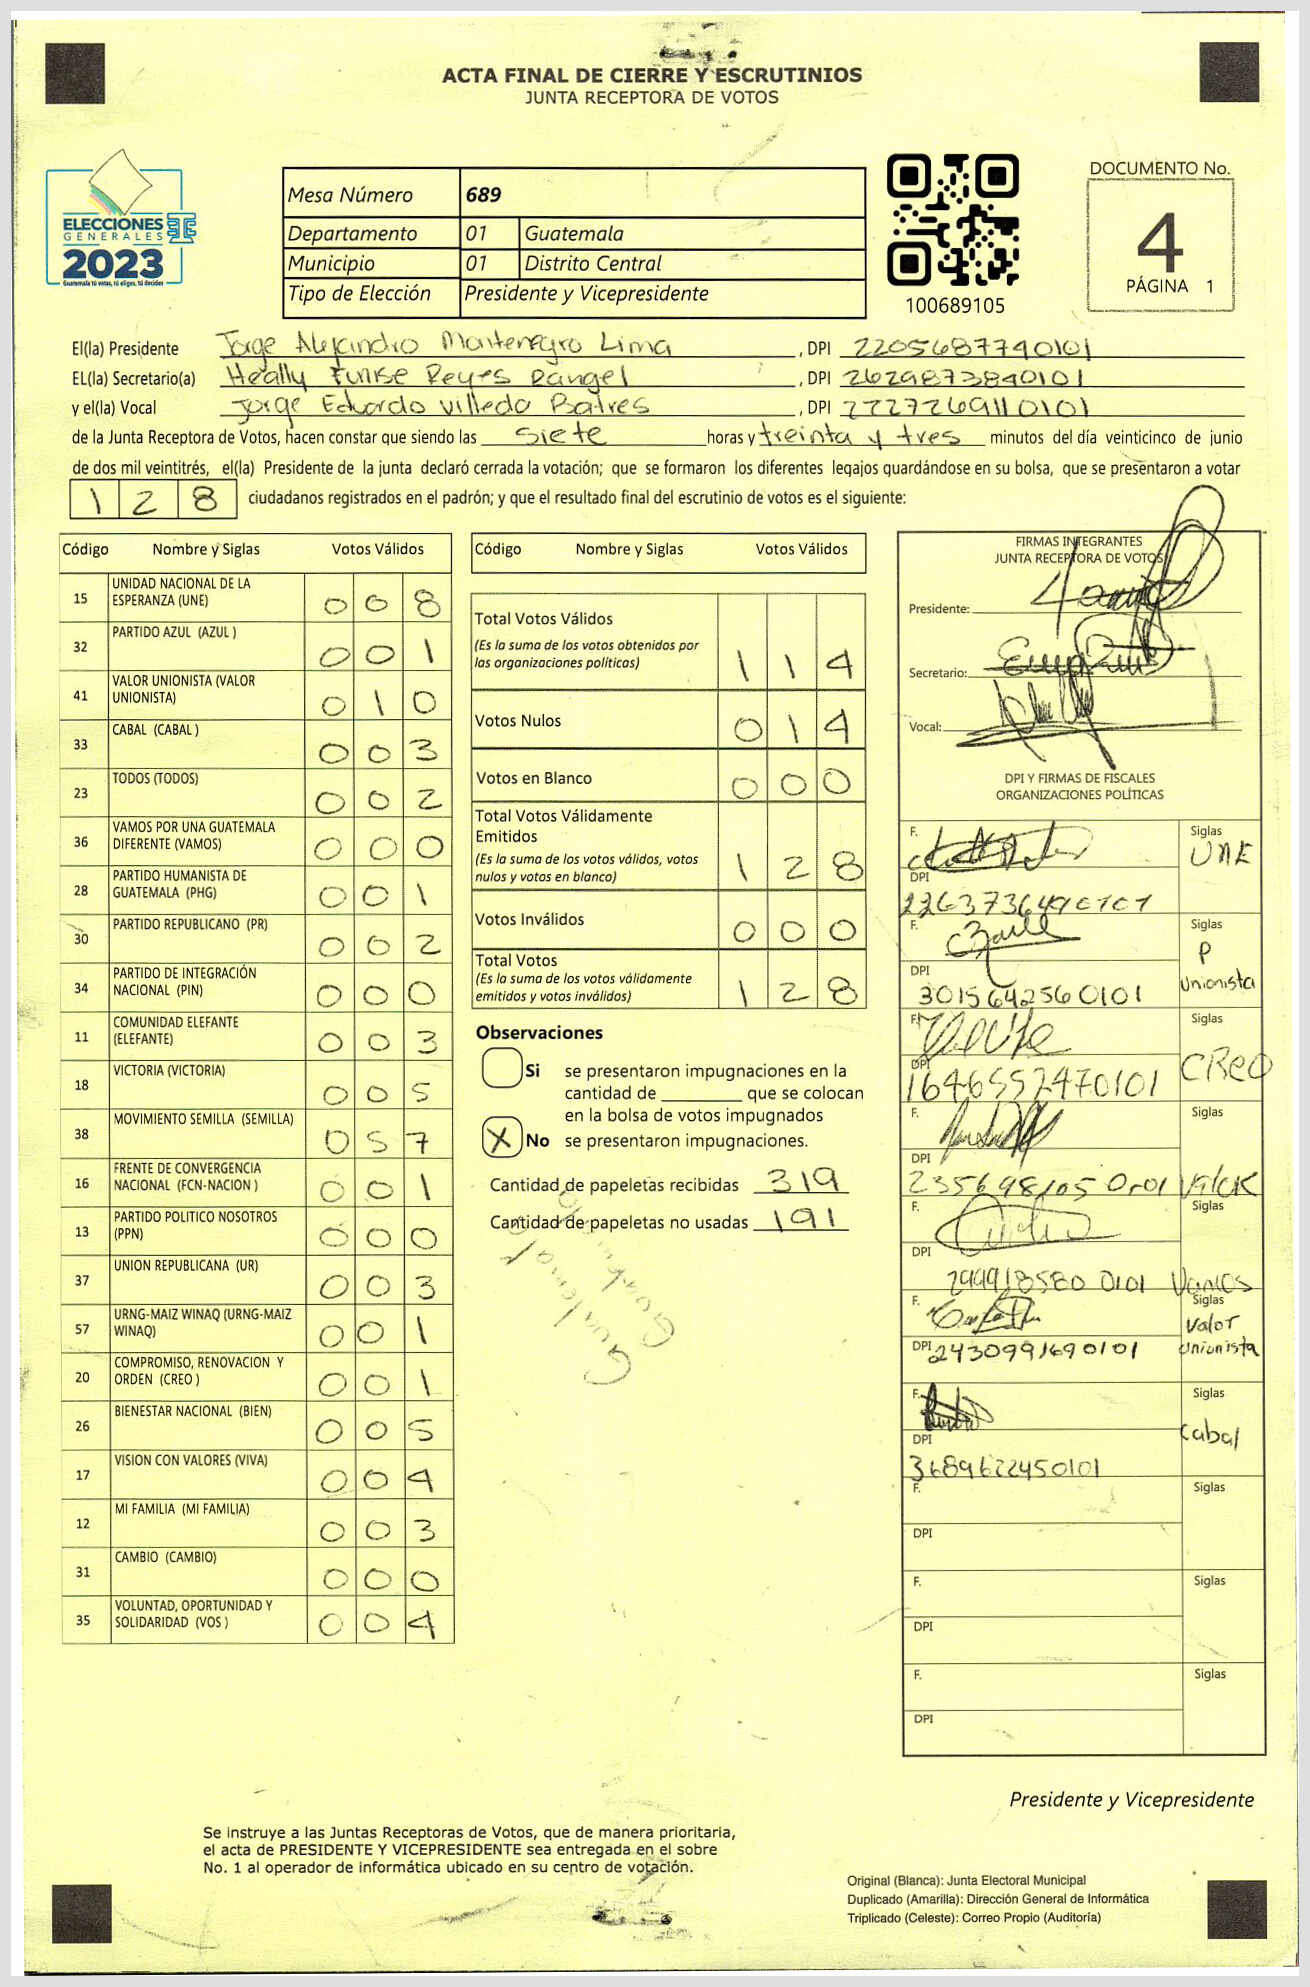 ACTA FINAL DE CIERRE Y ESCRUTINIOS
JUNTA RECEPTORA DE VOTOS
ELECCIONES
GENERALES
2023
Guatemala tú votas, tú eliges, tú decides
Mesa Número 689
Departamento 01 Guatemala
Municipio 01 Distrito Central
Tipo de Elección Presidente y Vicepresidente
100689105
DOCUMENTO No.
4
PÁGINA 1
El(la) Presidente Jorge Alejandro Montenegro Lima, DPI 2205687740101
EL(la) Secretario(a) Heally Eunise Reyes Rangel, DPI 2629873840101
y el(la) Vocal Jorge Eduardo Villeda Batres, DPI 2227269110101
de la Junta Receptora de Votos, hacen constar que siendo las siete horas y treinta y tres minutos del día veinticinco de junio
de dos mil veintitrés, el(la) Presidente de la junta declaró cerrada la votación; que se formaron los diferentes legajos guardándose en su bolsa, que se presentaron a votar
128 ciudadanos registrados en el padrón; y que el resultado final del escrutinio de votos es el siguiente:
Código Nombre y Siglas Votos Válidos
15 UNIDAD NACIONAL DE LA ESPERANZA (UNE) 008
32 PARTIDO AZUL (AZUL ) 001
41 VALOR UNIONISTA (VALOR UNIONISTA) 010
33 CABAL (CABAL ) 003
23 TODOS (TODOS) 002
36 VAMOS POR UNA GUATEMALA DIFERENTE (VAMOS) 000
28 PARTIDO HUMANISTA DE GUATEMALA (PHG) 001
30 PARTIDO REPUBLICANO (PR) 002
34 PARTIDO DE INTEGRACIÓN NACIONAL (PIN) 000
11 COMUNIDAD ELEFANTE (ELEFANTE) 003
18 VICTORIA (VICTORIA) 005
38 MOVIMIENTO SEMILLA (SEMILLA) 057
16 FRENTE DE CONVERGENCIA NACIONAL (FCN-NACION ) 001
13 PARTIDO POLITICO NOSOTROS (PPN) 000
37 UNION REPUBLICANA (UR) 003
57 URNG-MAIZ WINAQ (URNG-MAIZ WINAQ) 001
20 COMPROMISO, RENOVACION Y ORDEN (CREO ) 001
26 BIENESTAR NACIONAL (BIEN) 005
17 VISION CON VALORES (VIVA) 004
12 MI FAMILIA (MI FAMILIA) 003
31 CAMBIO (CAMBIO) 000
35 VOLUNTAD, OPORTUNIDAD Y SOLIDARIDAD (VOS ) 004
Código Nombre y Siglas Votos Válidos
Total Votos Válidos
(Es la suma de los votos obtenidos por
las organizaciones políticas) 114
Votos Nulos 014
Votos en Blanco 000
Total Votos Válidamente
Emitidos
(Es la suma de los votos válidos, votos
nulos y votos en blanco) 128
Votos Inválidos 000
Total Votos
(Es la suma de los votos válidamente
emitidos y votos inválidos) 128
Observaciones
Si se presentaron impugnaciones en la
cantidad de ________ que se colocan
en la bolsa de votos impugnados
X No se presentaron impugnaciones.
Cantidad de papeletas recibidas 319
Cantidad de papeletas no usadas 191
Guatemala
FIRMAS INTEGRANTES
JUNTA RECEPTORA DE VOTOS
Presidente:
Secretario:
Vocal:
DPI Y FIRMAS DE FISCALES
ORGANIZACIONES POLÍTICAS
F. Siglas
UNE
DPI
F. Siglas
P
Unionista
DPI
3015642560101
F. Siglas
CREO
DPI
1646552470101
F. Siglas
DPI
F. Siglas
DPI
299918580 0101 Vamos
F. Siglas
Valor
Unionista
DPI 2430991690101
F. Siglas
Cabal
DPI
3689622450101
F. Siglas
DPI
F. Siglas
DPI
F. Siglas
DPI
Presidente y Vicepresidente
Se instruye a las Juntas Receptoras de Votos, que de manera prioritaria,
el acta de PRESIDENTE Y VICEPRESIDENTE sea entregada en el sobre
No. 1 al operador de informática ubicado en su centro de votación.
Original (Blanca): Junta Electoral Municipal
Duplicado (Amarilla): Dirección General de Informática
Triplicado (Celeste): Correo Propio (Auditoría)